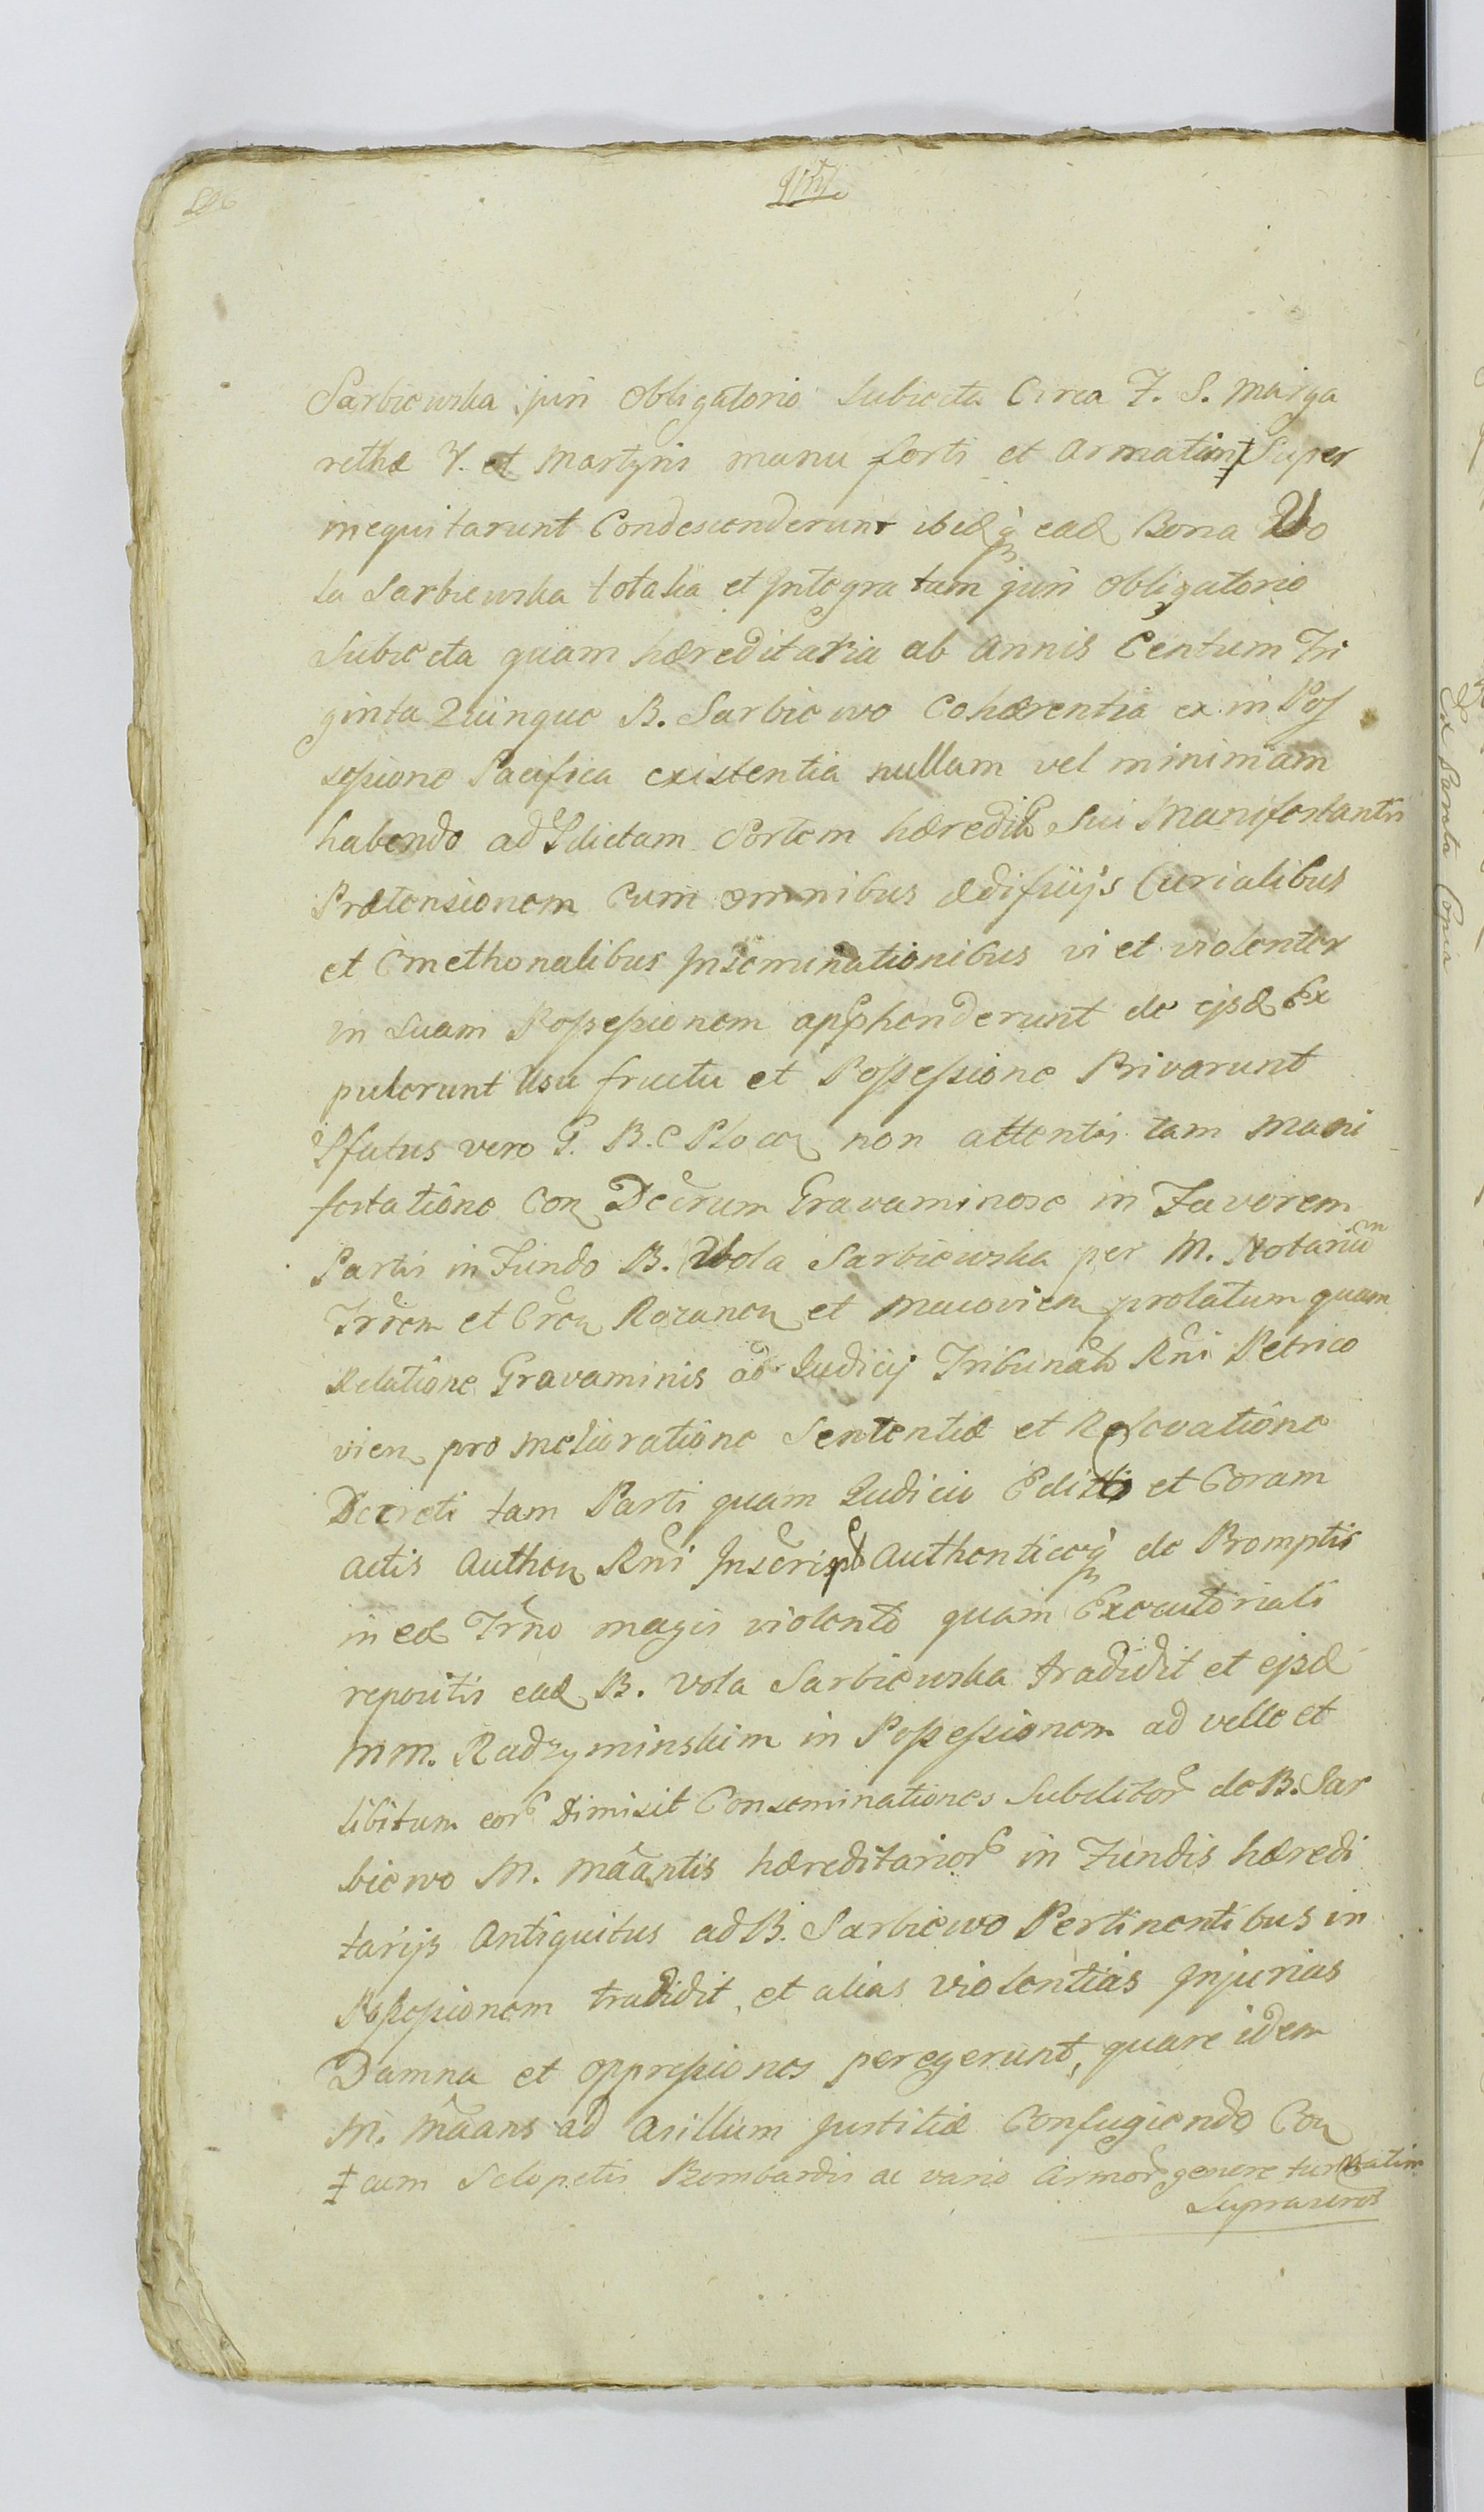 Sarbiewska juri obligatorio Subiecta Circa F. S. Marga
rethæ V. et Martyris manu forti et Armatim ‡ Super
inequitarunt Condescenderunt ibidq́ ead Bona Wo
la Sarbiewska totalia et Integra tam juri obligatorio
Subiecta quam hæreditaria ab Annis Centum Tri
ginta Quinque B. Sarbiewo Cohærentia ex in Pos
sessione Pacifica existentia nullam vel minimam
habendo ad Pdictam Sortem hæredit Sui Manifestantis
Prætensionem Cum omnibus ædifiijs Curialibus
et Cmethonalibus Inseminationibus vi et violenter
in Suam Possessionem apphenderunt de ejsd Ex
pulerunt Usu fructu et Possessione Privarunt
Pfatus vero G. B. C Ploc non attentis tam Mani
festatione Con Decrum Gravaminose in Favorem
Partis in Fundo B. Wola Sarbiewska per M. Notarium
Trrem et Cren Rozanen et Macovien prolatum quam
Relatione Gravaminis ad Judicij Tribunal Rni Petrico
vien pro melioratione Sententiæ et Relevatione
Decreti tam Parti quam Judicio Editis et Coram
actis Authen Rni Inscript Authenticeq́ de Promptis
in eod Trno magis violento quam Executoriali
repositis ead B. Vola Sarbiewska tradidit et ejsd
MM. Radzyminskim in Possessionem ad velle et
libitum eor Dimisit Conseminationes Subditor de B. Sar
biewo M. Mãantis hæreditarior in Fundis hæredi
tarijs Antiquitus ad B. Sarbiewo Pertinentibus in
Possessionem tradidit, et alias violentias Injurias
Damna et oppressiones peregerunt, quare idem
M. Mãans ad Asillum Justitiæ Confugiendo Con
‡ cum Sclopetis Bombardis ac vario Armor genere turmatim
Ex Parata Copia